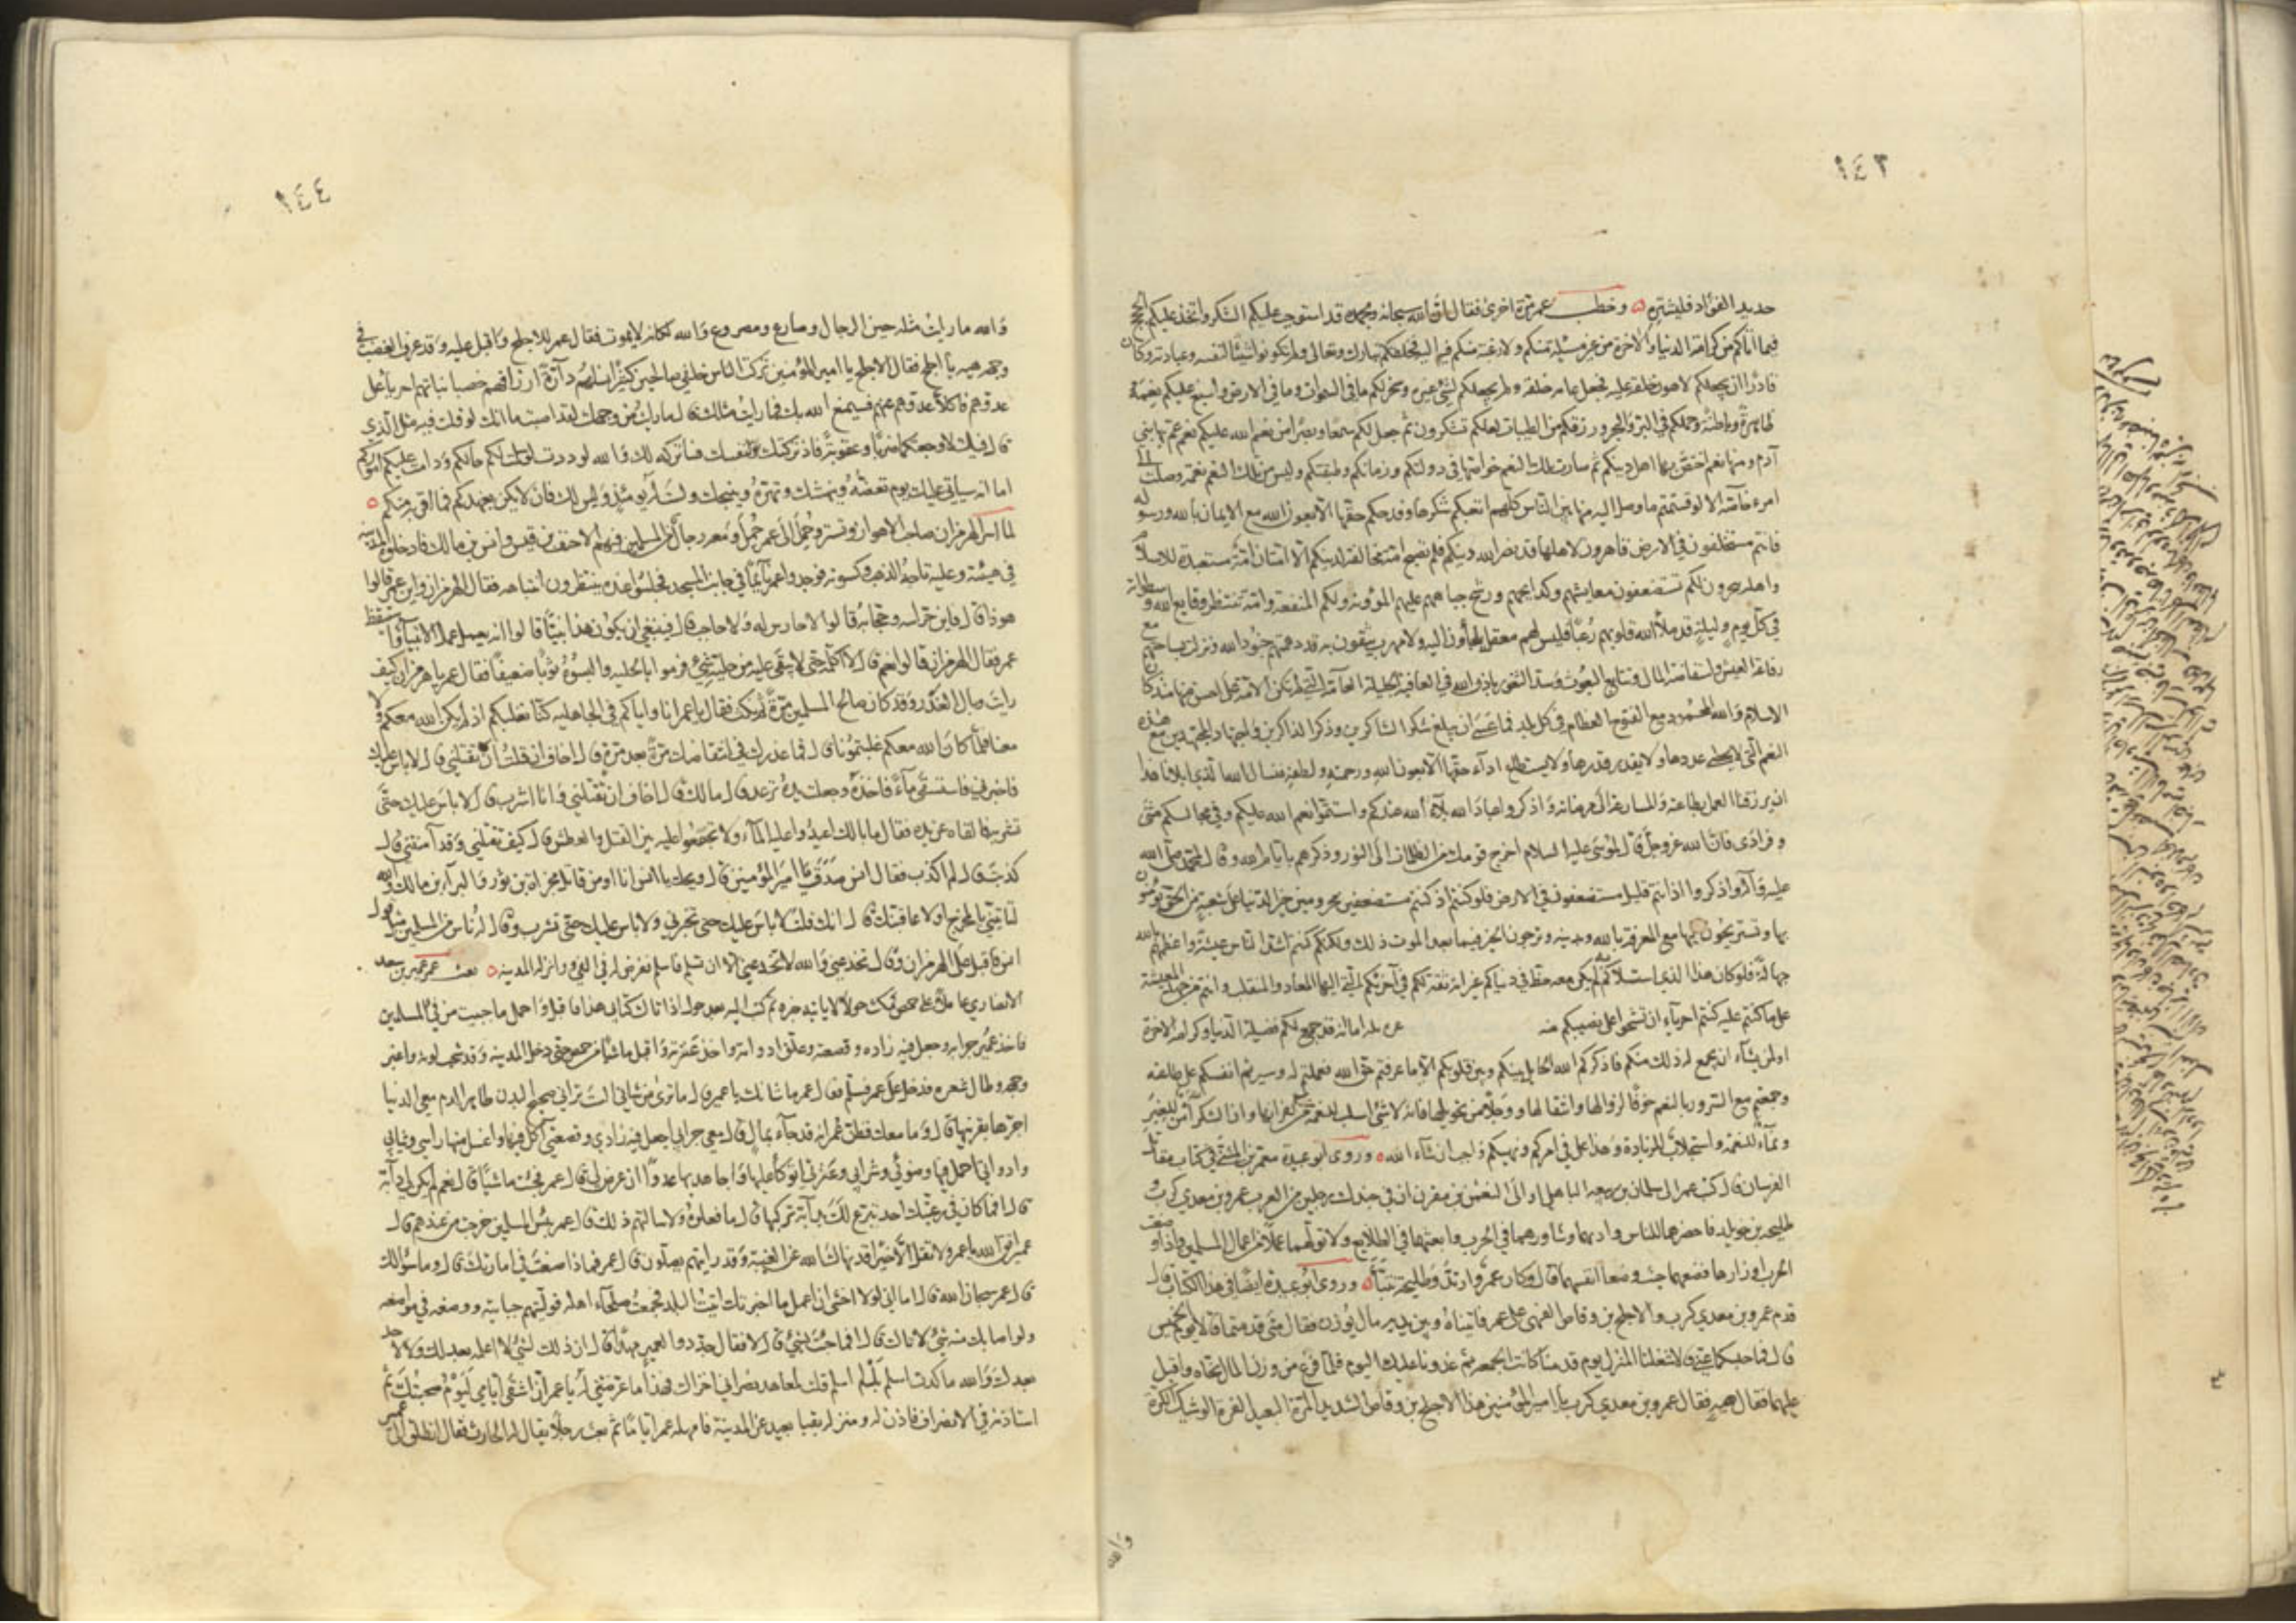 ١٤٣
حديد الفؤاد فليشتره ٥ وخطب عمر مرة اخرى فقال ان الله سبحانه وبحمده قد استوجب عليكم الشكر واتخذ عليكم الحج
فيما اتاكم من كرامة الدنيا والاخرة من غير مسئلة منكم ولا رغبة منكم فيه اليه فخلقكم تبارك وتعالى ولم تكونوا شيئا لنفسه وعبادته وكان
قادرا ان يجعلكم لاهون خلقه عليه فجعل عامة خلقه ولم يجعلكم لشئ غيره وسخر لكم ما في السموات وما في الارض واسبغ عليكم نعمه
ظاهرة وباطنة وحملكم في البر والبحر ورزقكم من الطيبات لعلكم تشكرون ثم جعل لكم سمعا وبصرا ومن نعم الله عليكم نعم عم بها بني
آدم ومنها نعم اختص بها اهل دينكم ثم صارت تلك النعم خواصها في دولتكم وزمانكم وطبقتكم وليس من تلك النعم نعمة وصلت الى
امرء خاصة الا لو قسمتم ما وصل اليه منها بين الناس كلهم اتعبهم شكرها وفدحهم حقها الا بعون الله مع الايمان بالله ورسوله
فانتم مستخلفون في الارض قاهرون لاهلها قد نصر الله دينكم فلم تصبح امة مخالفة لدينكم الا امتان امة مستعبدة للاسلام
واهله يجزون لكم تستصفون معايشهم وكدايحهم ورشح جباههم عليهم المؤونة ولكم المنفعة وامة تنتظر وقايع الله وسطواته
في كل يوم وليلة قد ملأ الله قلوبهم رعبا فليس لهم معقل يلجأون اليه ولا مهرب يتقون به قد دهمتهم جنود الله ونزلت بساحتهم مع
رفاغة العيش واستفاضة المال وتتابع البعوث وسد الثغور باذن الله في العافية الجليلة العامة التي لم تكن الامة على احسن منها منذ كان
الاسلام والله المحمود مع الفتوح العظام في كل بلد فما عسى ان يبلغ شكر الشاكرين وذكر الذاكرين واجتهاد المجتهدين مع هذه
النعم التي لا يحصى عددها ولا يقدر قدرها ولا يستطاع اداء حقها الا بعون الله ورحمته ولطفه فنسال الله الذي ابلانا هذا
ان يرزقنا العمل بطاعته والمسارعة الى مرضاته واذكروا عباد الله بلاء الله عندكم واستتموا نعم الله عليكم وفي مجالسكم مثنى
وفرادى فان الله عز وجل قال لموسى عليه السلام اخرج قومك من الظلمات الى النور وذكرهم بايام الله وقال لمحمد صلى الله
عليه وآله واذكروا اذ انتم قليل مستضعفون في الارض فلو كنتم اذ كنتم مستضعفين محرومين خير الدنيا على شعبة من الحق تؤمنون
بها وتستريحون اليها مع المعرفة بالله وبدينه وترجون الخير فيما بعد الموت ذلك ولكنكم كنتم اشد الناس عيشة واعظمهم بالله
جهالة فلو كان هذا الذي استلاكم به لم يكن معه حظ في دنياكم غير انه ثقة لكم في آخرتكم التي اليها المعاد والمنقلب وانتم من جهد المعيشة
على ما كنتم عليه كنتم احرياء ان تشحوا على نصيبكم منه بله اما انه قد جمع لكم فضيلة الدنيا وكرامة الاخرة
او لمن شاء ان يجمع له ذلك منكم فاذكركم الله الحائل بينكم وبين قلوبكم الا ما عرفتم حق الله فعملتم له وسيرتم انفسكم على طاعته
وجمعتم مع السرور بالنعم خوفا لزوالها وانتقالها ووجلا من تحويلها فانه لا شئ اسلب للنعمة من كفرانها وان الشكر امن للغير
ونماء للنعمة واستجلاب للزيادة وهذا علي في امركم ونهيكم واجب ان شاء الله ٥ وروى ابو عبيدة معمر بن المثنى في كتاب مقاتل
الفرسان قال كتب عمر الى سلمان بن ربيعة الباهلي او الى النعمن بن مقرن ان في جندك رجلين من العرب عمرو بن معدي كرب و
طليحة بن خويلد فاحضرهما الناس وادبهما وشاورهما في الحرب وابعثهما في الطلايع ولا تولهما عملا من اعمال المسلمين واذا وضعت
الحرب اوزارها فضعهما حيث وضعا انفسهما قال وكان عمرو ارتد وطليحة تنبأ ٥ وروى ابو عبيدة ايضا في هذا الكتاب قال
قدم عمرو بن معدي كرب والاجلح بن وقاص الفهمي على عمر فاتياه وبين يديه مال يوزن فقال متى قدمتما قالا يوم الخميس
قال فما حبسكما عني قالا شغلنا المنزل يوم قدمنا ثم كانت الجمعة ثم غدونا عليك اليوم فلما فرغ من وزن المال نحاه واقبل
عليهما فقال هيه فقال عمرو بن معدي كرب يا امير المؤمنين هذا الاجلح بن وقاص الشديد المرة البعيد الغرة الوشيك الكرة
والله
١٤٤
والله ما رايت مثله حين الرجال صارع ومصروع والله لكانه لا يموت فقال عمر للاجلح واقبل عليه وقد عرف الغضب في
وجهه هيه يا اجلح فقال الاجلح يا امير المؤمنين تركت الناس خلفي صالحين كثيرا نسلهم دارة ارزاقهم خصبا نباتهم اجرياء على
عدوهم فاكلا عدوهم عنهم فسيمتع الله بك فما راينا مثلك
قال فيك لاوجعتكما ضربا وعقوبة فاذ تركتك لنفسك فساتركه لك والله لوددت لو سلمت لكم حالكم ودامت عليكم اموركم
اما انه سياتي عليك يوم تعضه وينهشك وتهره وينبحك ولست له يومئذ وليس لك فان لا يكن بعهدكم فما اقربه منكم ٥
لما اسر الهرمزان صاحب الاهواز وتستر وحمل الى عمر حمل ومعه رجال من المسلمين فيهم الاحنف بن قيس وانس بن مالك فادخلوه المدينة
في هيئته وعليه تاجه الذهب وكسوته فوجدوا عمر نائما في جانب المسجد فجلسوا عنده ينتظرون انتباهه فقال الهرمزان واين عمر قالوا
هو ذا قال فاين حراسه وحجابه قالوا لا حارس له ولا حاجب قال فينبغي ان يكون هذا نبيا قالوا انه يعمل عمل الانبياء واستيقظ
عمر فقال الهرمزان قالوا نعم قال لا اكلمه حتى لا يبقى عليه من حليته شئ فرموا بالحلية والبسوه ثوبا ضعيفا فقال عمر يا هرمزان كيف
رايت وبال الغدر وقد كان صالح المسلمين مرة ثم نكث فقال يا عمر انا واياكم في الجاهلية كنا نغلبكم اذ لم يكن الله معكم ولا
معنا فلما كان الله معكم غلبتمونا قال فما عذرك في انتقاضك مرة بعد مرة قال اخاف ان قلت ان تقتلني قال لا باس عليك
فاخبرني فاستسقى ماء فاخذه وجعلت يده ترعد قال مالك قال اخاف ان تقتلني وانا اشرب قال لا باس عليك حتى
تشربه فالقاه عن يده فقال ما بالك اعيدوا عليه الماء ولا تجمعوا عليه بين القتل والعطش قال كيف تقتلني وقد آمنتني قال
كذبت قال لم اكذب فقال انس صدق يا امير المؤمنين قال ويحك يا انس انا اومن قاتل مجزاة بن ثور والبراء بن مالك والله
لتاتيني بالمخرج او لاعاقبنك قال انك قلت لا باس عليك حتى تخبرني ولا باس عليك حتى تشرب وقال له ناس من المسلمين مثل قول
انس فاقبل على الهرمزان وقال تخدعني والله لا تخدعني الا ان تسلم فاسلم ففرض له في الفئ وانزله المدينة ٥ بعث عمر عمير بن سعد
الانصاري عاملا على حمص فمكث حولا لا ياتيه خبره ثم كتب اليه بعد حول اذا اتاك كتابي هذا فاقبل واحمل ما جبيت من فئ المسلمين
فاخذ عمير جرابه وجعل فيه زاده وقصعته وعلق اداوته واخذ عنزته واقبل ماشيا من حمص حتى دخل المدينة وقد شحب لونه واغبر
وجهه وطال شعره فدخل على عمر فسلم فقال عمر ما شانك يا عمير قال ما ترى من شاني الست تراني صحيح البدن ظاهر الدم معي الدنيا
اجرها بقرنيها قال وما معك فظن عمر انه قد جاء بمال قال معي جرابي اجعل فيه زادي وقصعتي آكل فيها واغسل منها راسي وثيابي
واداوتي احمل فيها وضوئي وشرابي وعنزتي اتوكأ عليها واجاهد بها عدوا ان عرض لي قال عمر فجئت ماشيا قال نعم لم يكن لي دابة
قال افما كان في رعيتك احد يتبرع لك بدابة تركبها قال ما فعلوا ولا سالتهم ذلك قال عمر بئس المسلمون خرجت من عندهم قال
عمير اتق الله يا عمر ولا تقل الا خيرا قد نهاك الله عن الغيبة وقد رايتهم يصلون قال عمر فماذا صنعت في امارتك قال وما سؤالك
قال عمر سبحان الله قال اما اني لولا اخشى ان اعمل ما اخبرتك اتيت البلد فجمعت صلحاء اهله فوليتهم جبايته ووضعه في مواضعه
ولو اصابك منه شئ لاتاك قال افما جئت بشئ قال لا فقال جددوا لعمير عهدا قال ان ذلك لشئ لا اعمله بعد لك ولا لاحد
بعدك والله ما كدت اسلم بل لم اسلم قلت لمعاهد نصراني اخزاك الله فهذا ما عرضتني له يا عمر ان اشقى ايامي ليوم صحبتك ثم
استاذنه في الانصراف فاذن له ومنزله بقبا بعيد عن المدينة فامهله عمر اياما ثم بعث رجلا يقال له الحارث فقال انطلق الى عمير